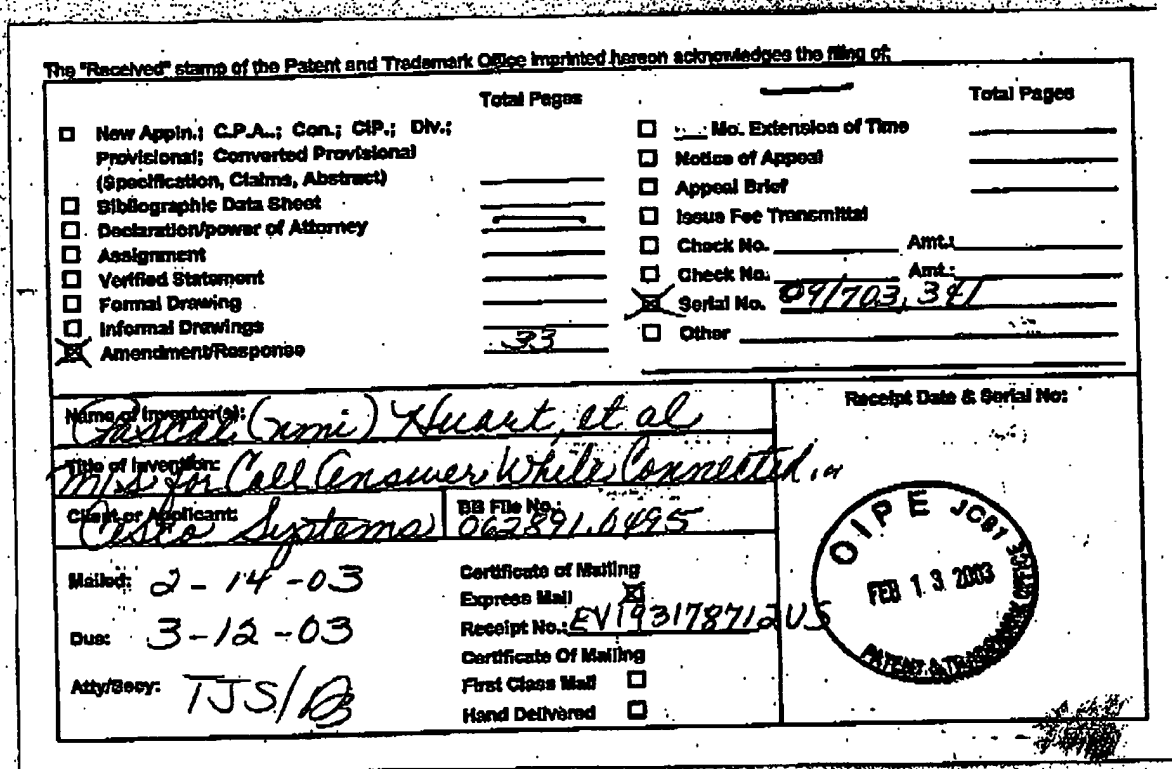 The "Received" stamp of the Patent and Trademark Office imprinted hereon acknowledges the filing of:
Total Pages
New Appln.; C.P.A.; Con.; CIP.; Div.;
Provisional; Converted Provisional
(Specification, Claims, Abstract)
Bibliographic Data Sheet
Declaration/power of Attorney
Assignment
Verified Statement
Formal Drawing
Informal Drawings
Amendment/Response 33
Total Pages
Mo. Extension of Time
Notice of Appeal
Appeal Brief
Issue Fee Transmittal
Check No. Amt.:
Check No. Amt.:
Serial No. 09/703,341
Other
Name of Inventor(s): Pascal (nmi) Huart, et al
Title of Invention: M/S for Call Answer While Connected
Client or Applicant: Cisco Systems
BB File No.: 062891.0495
Mailed: 2-14-03
Due: 3-12-03
Atty/Secy: TJS/
Certificate of Mailing
Express Mail
Receipt No.: EV193178712US
Certificate Of Mailing
First Class Mail
Hand Delivered
Receipt Date & Serial No:
OIPE JC81
FEB 13 2003
PATENT & TRADEMARK OFFICE